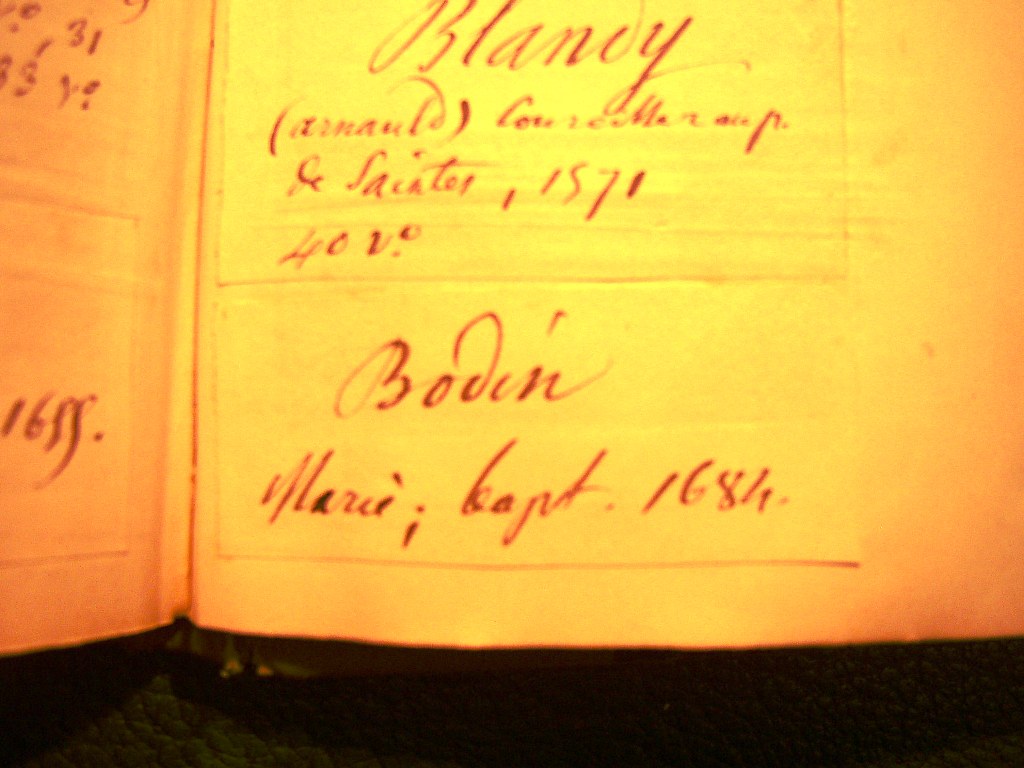 31
33 vº
1655.
Blandy
(arnauld) Conseiller au p.
de Saintes, 1571
40 vº
Bodin
Marie; bapt. 1684.